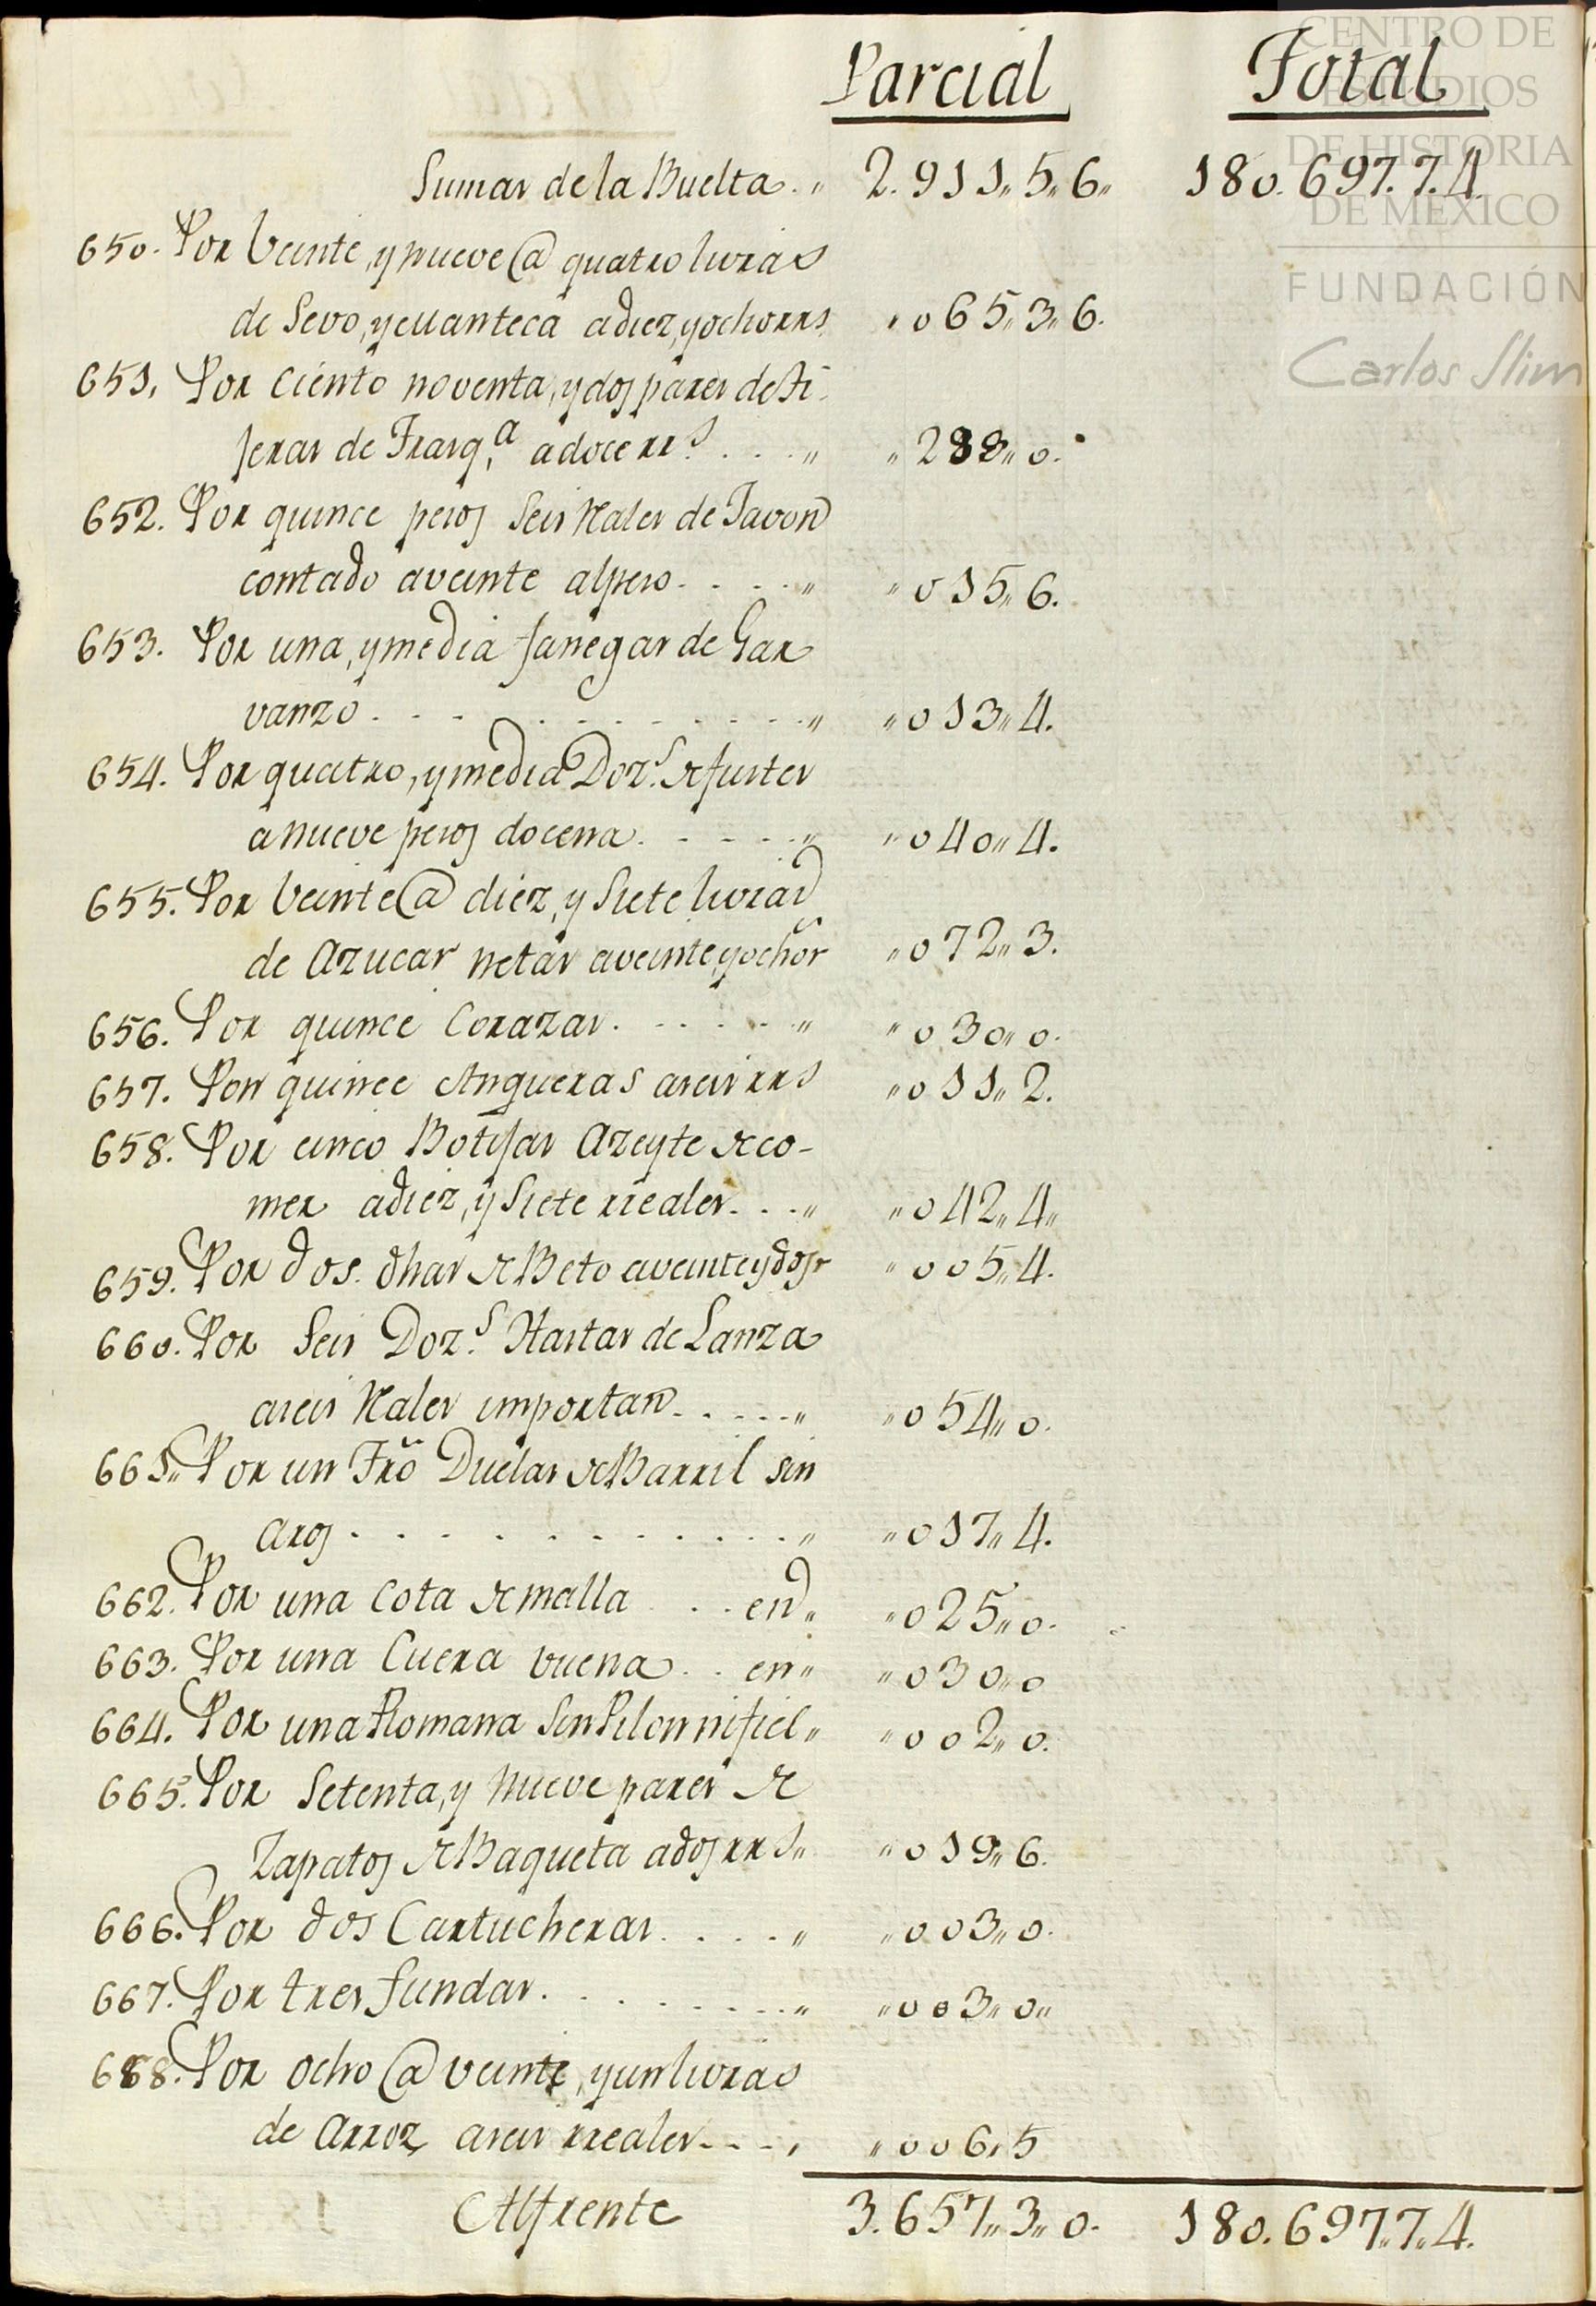 CENTRO DE
ESTUDIOS
DE HISTORIA
DE MÉXICO
FUNDACIÓN
Carlos Slim
Parcial Total
Sumas de la Buelta . „ 2.911„5„6„ 180.697.7.4.
650. Por veinte, y nueve @ quatro livras
de Sevo, y Manteca a diez, y ocho rrs „065„3„6.
651. Por Ciento noventa, y dos pares de Ti-
jeras de Frasq.ª a doce rr.s . . . „ „288„0.
652. Por quince pesos Seis Rales de Javon
contado a veinte al peso . . . . „ „015„6.
653. Por una, y media fanegas de Gar
vanzo . . . . . . . . . . . „ „013„4.
654. Por quatro, y media Doz.s de fustes
a nueve pesos docena . . . . . „ „040„4.
655. Por veinte @ diez, y Siete livras
de Azucar netas a veinte, y ocho r „072„3.
656. Por quince Corazas . . . . . „ „030„0.
657. Por quince Anqueras a seis rrs „011„2.
658. Por cinco Botijas Azeyte de co-
mer a diez, y Siete rreales . . . „ „042„4„
659. Por dos dhas de Beto a veinte y dos r „005„4.
660. Por Seis Doz.s Hastas de Lanza
a seis Rales importan . . . . . „ „054„0.
661„ Por un Trõ Duelas de Barril sin
aros . . . . . . . . . . . „ „017„4.
662. Por una Cota de malla . . . en „ „025„0.
663. Por una Cuera buena . . en „ „030„0
664. Por una Romana Sin Pilon ni fiel „ „002„0.
665. Por Setenta, y nueve pares de
Zapatos de Baqueta a dos rrs „ „019„6.
666. Por dos Cartucheras . . . . „ „003„0.
667. Por tres fundas . . . . . . . „ „003„0„
668. Por ocho @ veinte, y un livras
de Arroz a seis rreales . . . , „006„5
Al frente 3.657„3„0. 180.697„7„4.